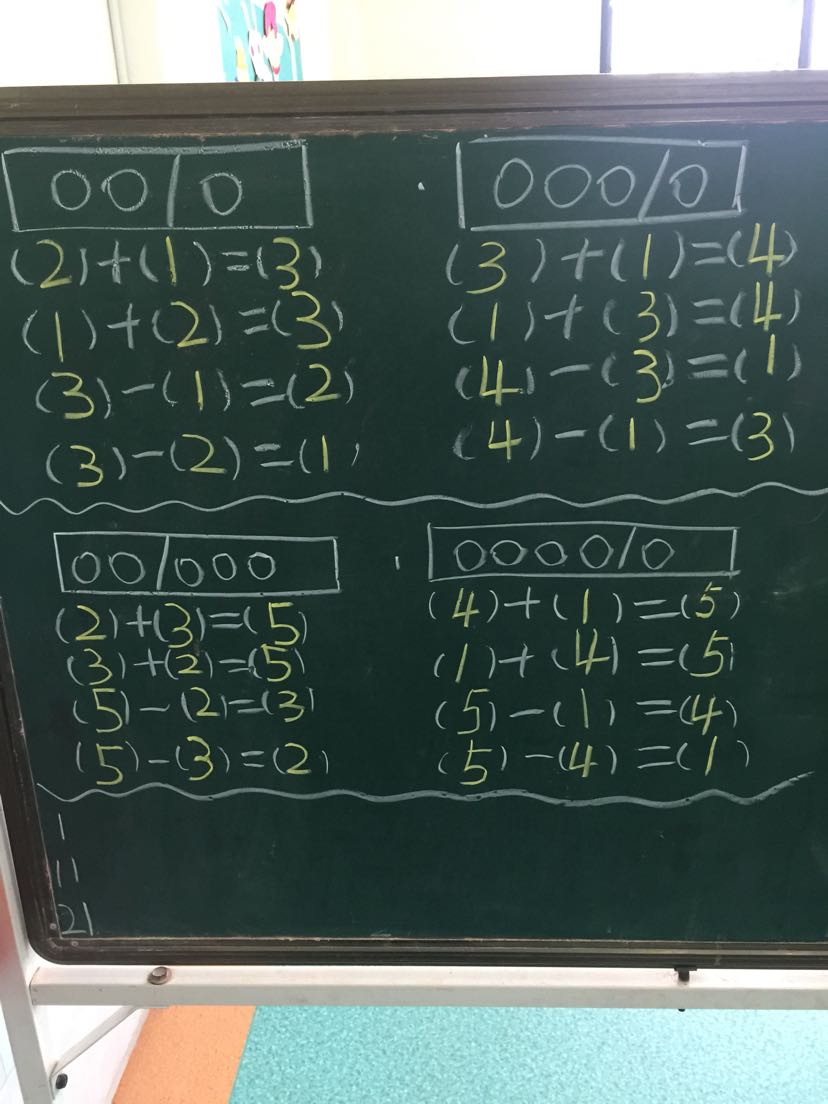 00/0
(2)+(1)=(3)
(1)+(2)=(3)
(3)-(1)=(2)
(3)-(2)=(1)
000/0
(3)+(1)=(4)
(1)+(3)=(4)
(4)-(3)=(1)
(4)-(1)=(3)
00/000
(2)+(3)=(5)
(3)+(2)=(5)
(5)-(2)=(3)
(5)-(3)=(2)
0000/0
(4)+(1)=(5)
(1)+(4)=(5)
(5)-(1)=(4)
(5)-(4)=(1)
1
11
21